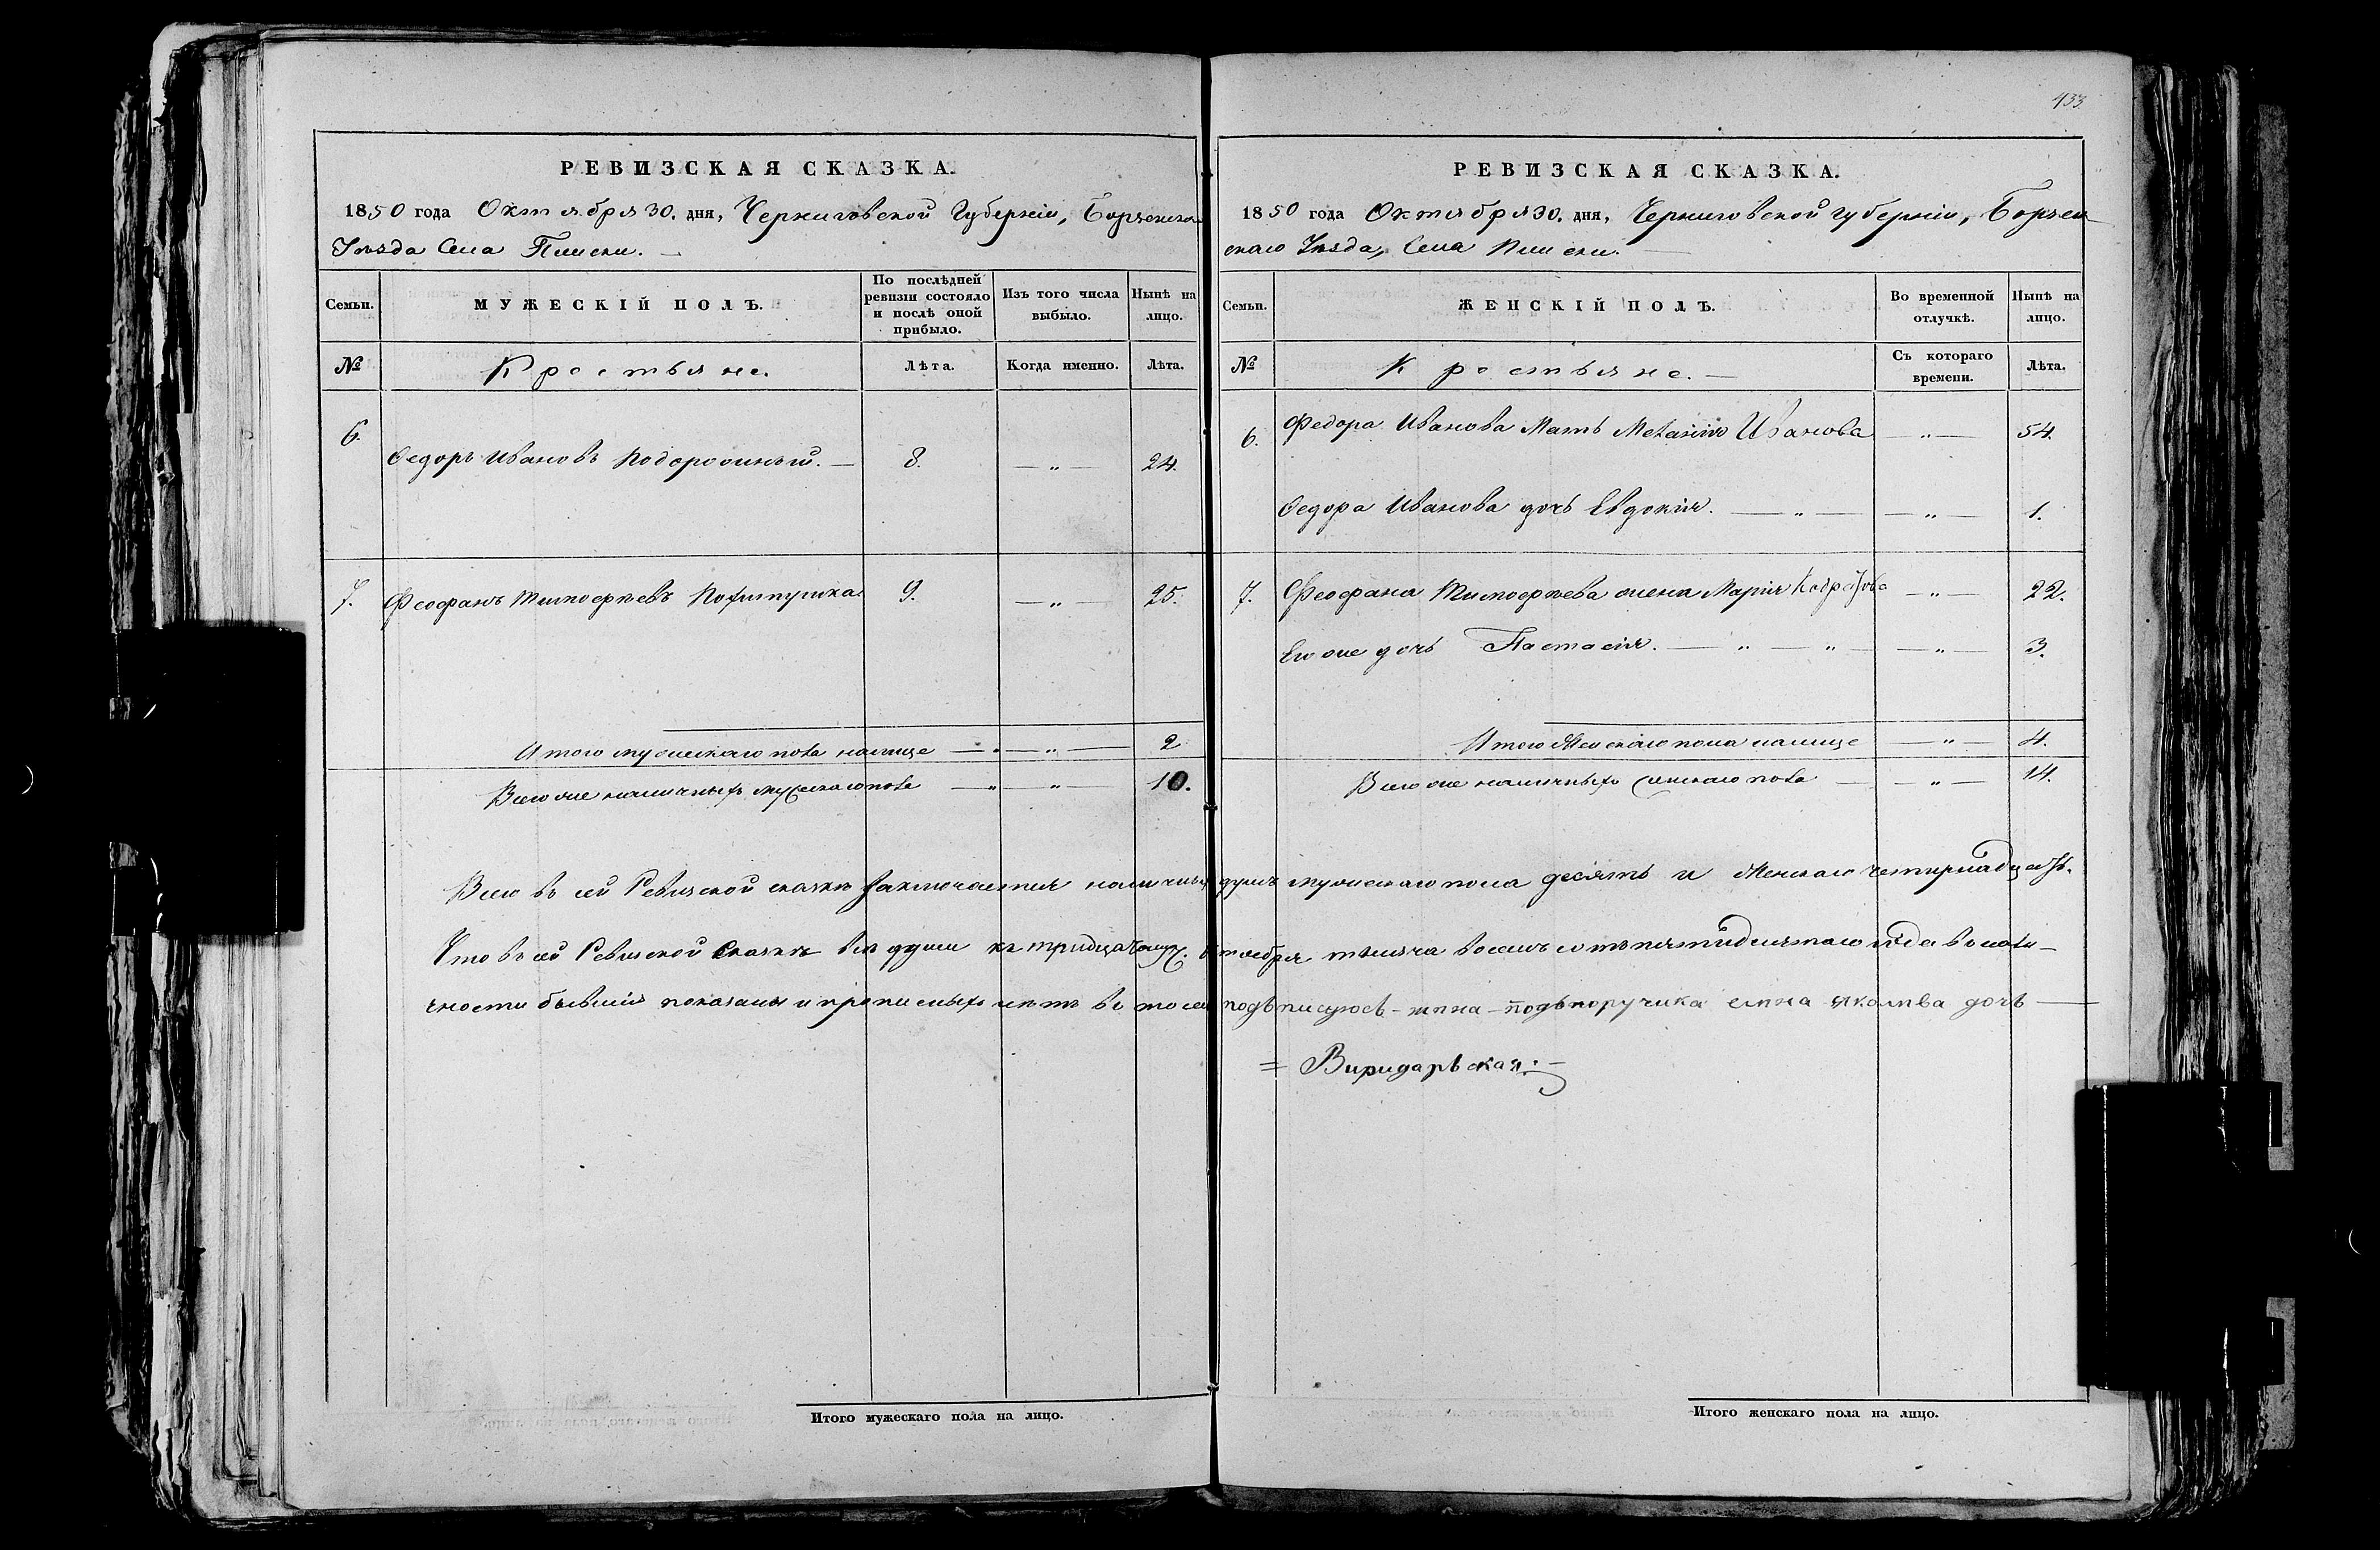 433
РЕВИЗСКАЯ СКАЗКА.
1850 года Октября 30. дня, Черниговской Губерніи, Борзенскаго
Уѣзда Села Плиски.
Семьи. МУЖЕСКІЙ ПОЛЪ. По послѣдней ревизіи состояло и послѣ оной прибыло. Изъ того числа выбыло. Нынѣ на лицо.
№ Крестьяне. Лѣта. Когда именно. Лѣта.
6.
Федоръ Ивановъ — 8. — „ — 24.
7. Феофанъ Тимофеевъ 9. — „ — 25.
Итого мужескаго пола налице — „ — „ — 2
Всего же наличныхъ мужескаго пола — „ — „ — 10.
РЕВИЗСКАЯ СКАЗКА.
1850 года Октября 30. дня, Черниговской губерніи, Борзен
скаго Уѣзда, Села Плиски. —
Семьи. ЖЕНСКІЙ ПОЛЪ. Во временной отлучкѣ. Нынѣ на лицо.
№ Крестьяне. — Съ котораго времени. Лѣта.
6. Федора Иванова Мать Меланія Иванова — „ — 54.
Федора Иванова дочь Евдокія. — „ — — „ — 1.
7. Феофана Тимофеева жена Марія — „ — 22.
Его же дочь Настасія. — „ — „ — „ — 3.
Итого Женскаго пола налице — „ — 4.
Всего же наличныхъ женскаго пола — — „ — 14.
Всего въ сей Ревизской сказкѣ заключается наличныхъ душъ мужескаго пола десять и Женскаго четырнадцать.
Что въ сей Ревизской Сказкѣ всѣ души къ тридцатому октября тысяча восемъ сотъ пятидесятаго года въ нали—
чности бывшія показаны и прописныхъ нѣтъ въ томъ подъписуюсь - подъпоручика дочь —
= Виридарьская:—
Итого мужескаго пола на лицо.
Итого женскаго пола на лицо.